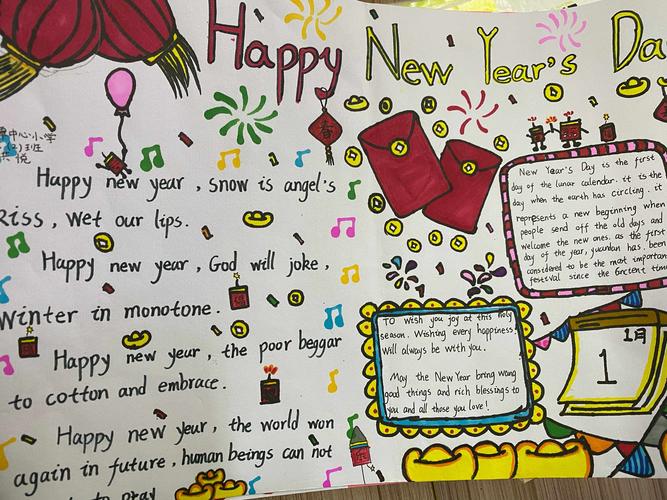 Happy New Year's Da
春
中心小学
(2)班
悦
Happy new year, snow is angel's
kiss, wet our lips.
Happy new year, God will joke,
winter in monotone.
Happy new year, the poor beggar
to cotton and embrace.
Happy new year, the world won
again in future, human beings can not
to pray
New Year's Day is the first
day of the lunar calendar. it is the
day when the earth has circling. it
represents a new beginning when
people send off the old days and
welcome the new ones. as the first
day of the year, yuandan has been
considered to be the most important
festival since the 6ncient time
To wish you joy at this holy
season. Wishing every happiness
will always be with you.
May the New Year bring wang
good things and rich blessings to
you and all those you love!
1月
1